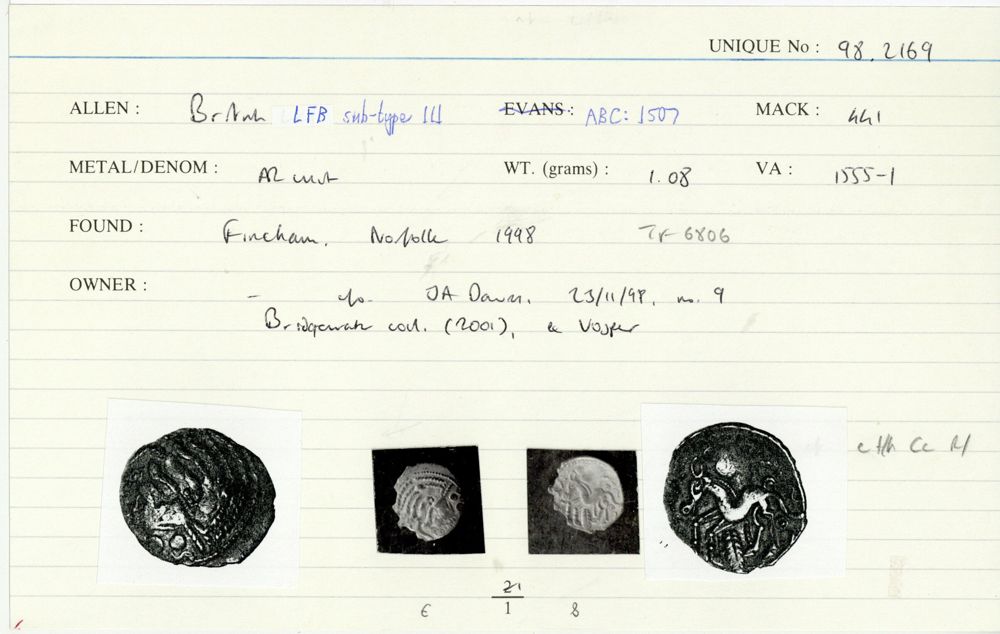 UNIQUE No : 98.2169
ALLEN : British LFB sub-type III EVANS : ABC: 1507 MACK : 441
METAL/DENOM : AR unit WT. (grams) : 1.08 VA : 1555-1
FOUND : Fincham, Norfolk 1998 TF 6806
OWNER :
- JA Davies, 23/11/98, no. 9
Bridgewater coll. (2001), ex Vosper
Cc
21
1